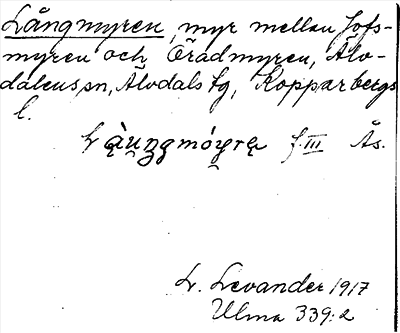 Långmyren, myr mellan Jofs-
myren och Öradmyren, Älv-
dalens sn, Älvdals tg, Kopparbergs
l.
f. III Ås.
L. Levander 1917
Ulma 339:2